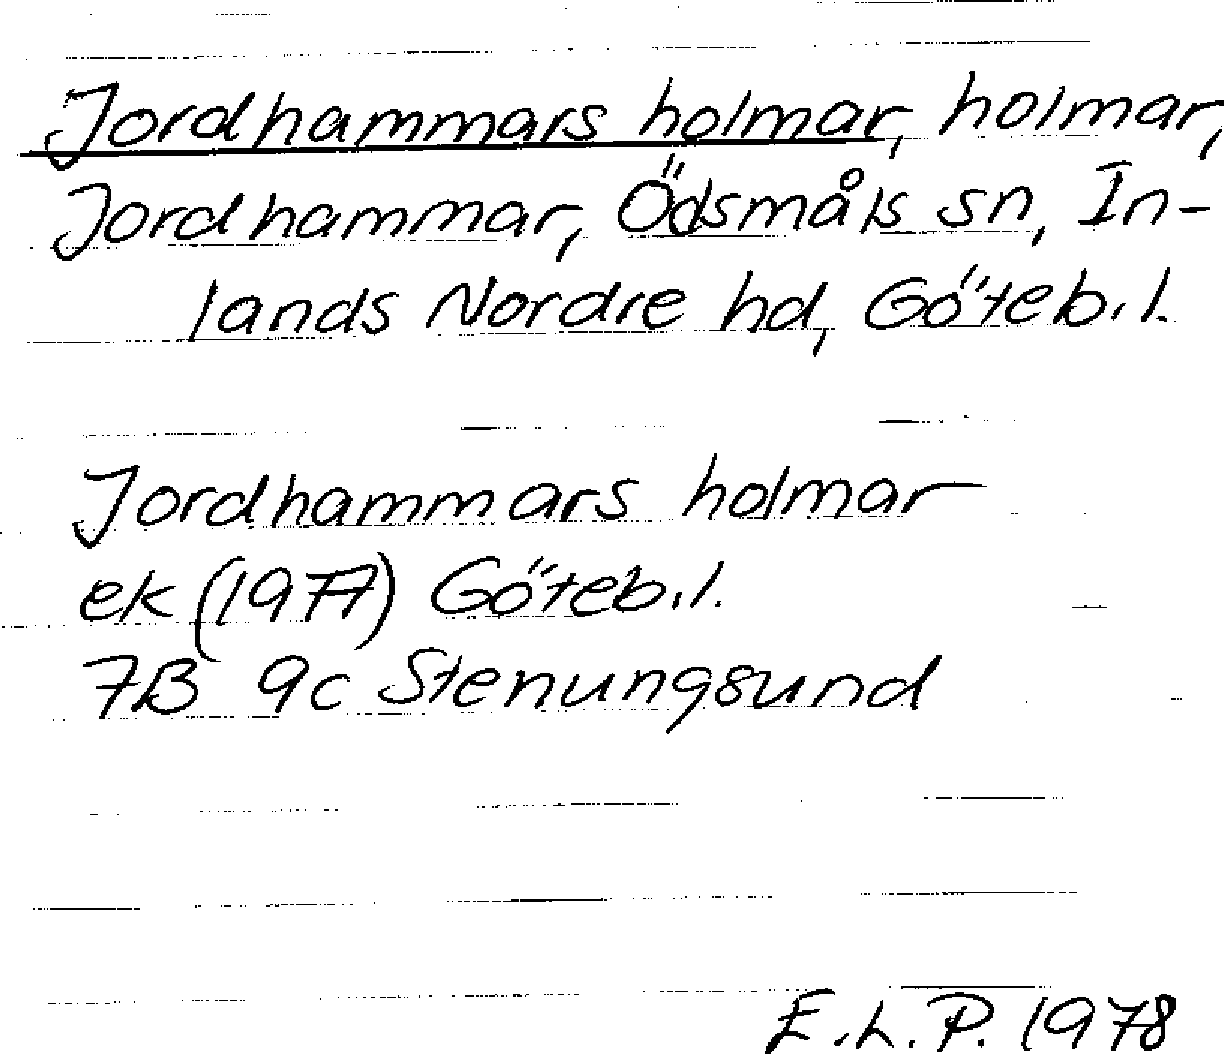 Jordhammars holmar, holmar,
Jordhammar, Ödsmåls sn, In-
lands Nordre hd, Göteb.l.
Jordhammars holmar
ek (1977) Göteb.l.
7B 9c Stenungsund
E.L.P. 1978